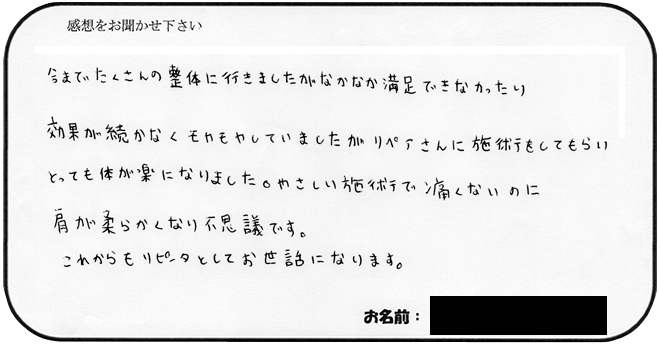 感想をお聞かせ下さい
今までたくさんの整体に行きましたがなかなか満足できなかったり
効果が続かなくモヤモヤしていましたがリペアさんに施術をしてもらい
とっても体が楽になりました。やさしい施術で痛くないのに
肩が柔らかくなり不思議です。
これからもリピータとしてお世話になります。
お名前：